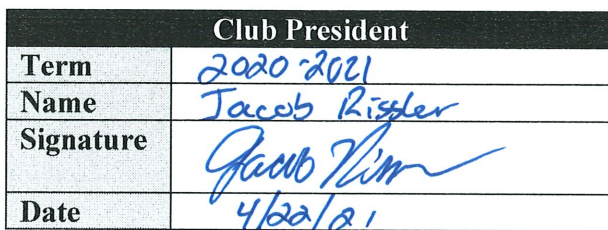 Club President
Term 2020-2021
Name Jacob Rissler
Signature Jacob
Date 4/22/21